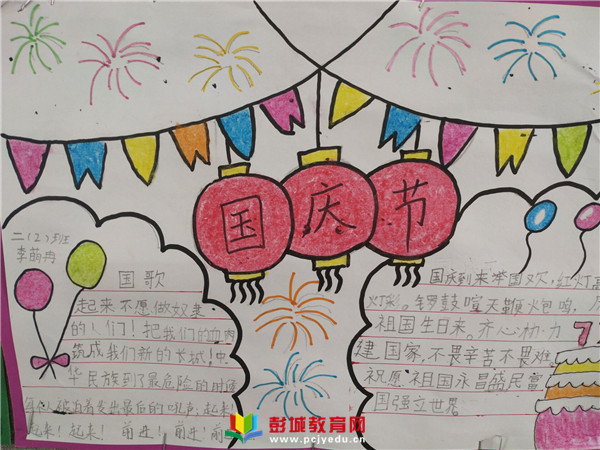 国庆节
二(2)班
李萌冉
国歌
起来不愿做奴隶
的人们！把我们的血肉
筑成我们新的长城！中
华民族到了最危险的时候
每个人被迫着发出最后的吼声。起来！
起来！起来！前进！前进！前
国庆到来举国欢，红灯高
灯彩。锣鼓喧天鞭炮鸣，
祖国生日来。齐心协力
建国家，不畏辛苦不畏难。
祝愿祖国永昌盛民富
国强立世界
7
彭城教育网
www.pcjyedu.cn